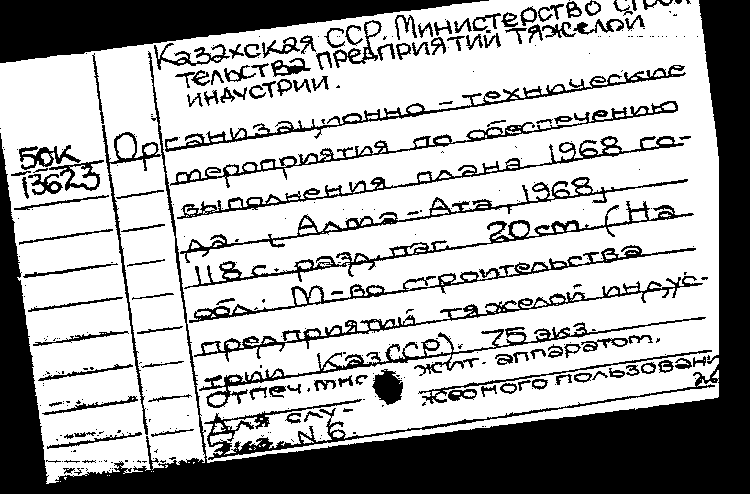 Казахская ССР. Министерство строи
тельства предприятий тяжелой
индустрии.
50К
13623
Организационно-технические
мероприятия по обеспечению
выполнения плана 1968 го-
да. [Алма-Ата, 1968].
118 с. разд. паг. 20 см. (На
обл.: М-во строительства
предприятий тяжелой индус-
трии КазССР). 75 экз.
Отпеч. множит. аппаратом.
Для служебного пользовани
Экз. N 6.